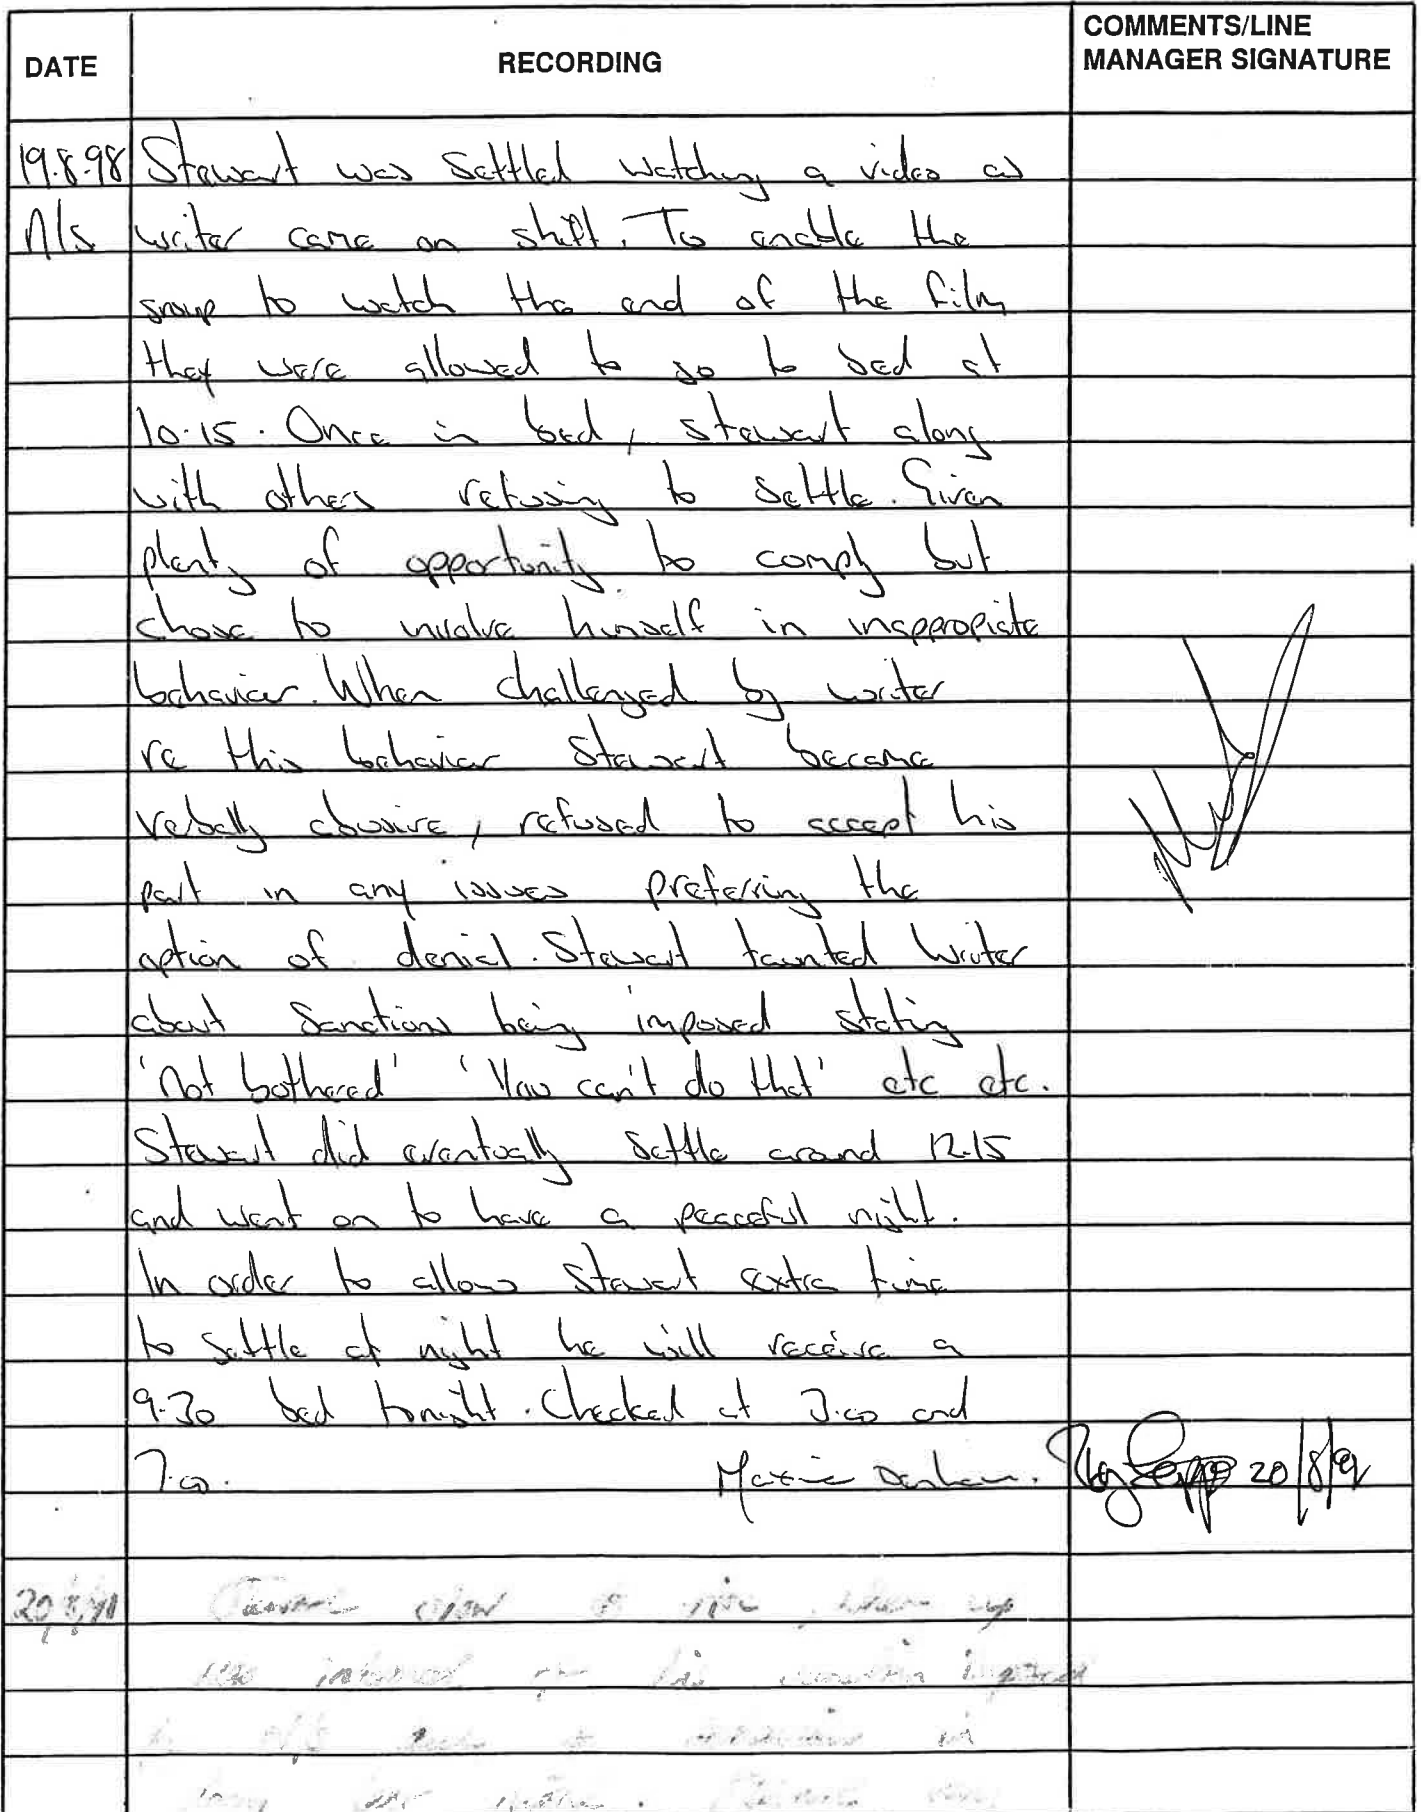 DATE
RECORDING
COMMENTS/LINE
MANAGER SIGNATURE
19.8.98 Stewart was settled watching a video as
N/S writer came on shift. To enable the
group to watch the end of the film
they were allowed to go to bed at
10.15. Once in bed, stewart along
with others refusing to settle. Given
plenty of opportunity to comply but
chose to involve himself in inappropiate
behavior. When challenged by writer
re this behavior Stewart became
verbally abusive, refused to accept his
part in any issues preferring the
option of denial. Stewart taunted writer
about Sanctions being imposed stating
'Not bothered' 'You can't do that' etc etc.
Stewart did eventually settle around 12.15
and went on to have a peaceful night.
In order to allow Stewart extra time
to settle at night he will receive a
9.30 bed tonight. Checked at 3.00 and
7.00.
20/8/98